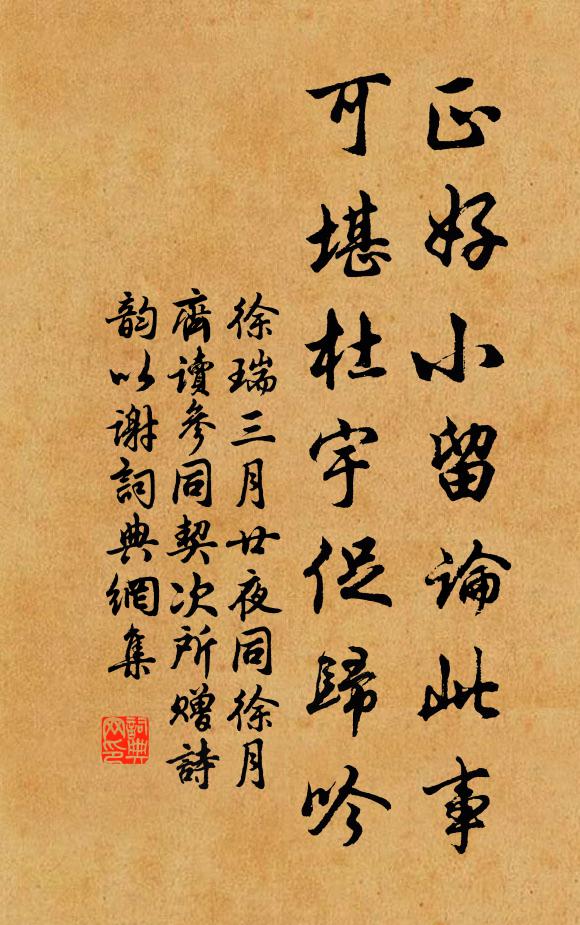 正好小留論此事
可堪杜宇促歸吟
徐瑞三月廿夜同徐月
齋讀參同契次所贈詩
韵以謝詞典網集
詞典
网印